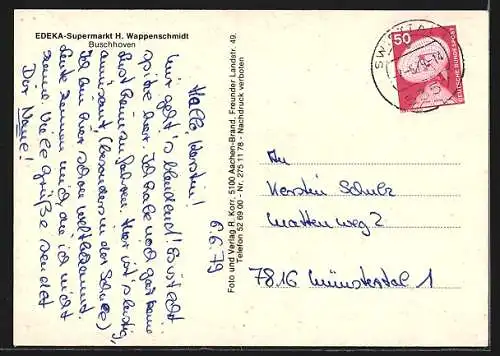 EDEKA-Supermarkt H. Wappenschmidt
Buschhoven
6.6.79
Hallo Kerstin!
Mir geht's blendend! Es ist echt
spitze hier. Ich habe noch gar keine
Lust heimzufahren. Hier ist's lustig,
amüsant (besonders in der Schule)
Ich bin hier schon weltbekannt.
Leute kennen mich, die ich nicht
kenne. Viele Grüße sendet
Dir
Foto und Verlag R. Korr, 5100 Aachen-Brand, Freunder Landstr. 49,
Telefon 52 69 00 - Nr. 275 11 78 - Nachdruck verboten
50
DEUTSCHE BUNDESPOST
An
Kerstin Schulz
Mattenweg 2
7816 Münstertal 1